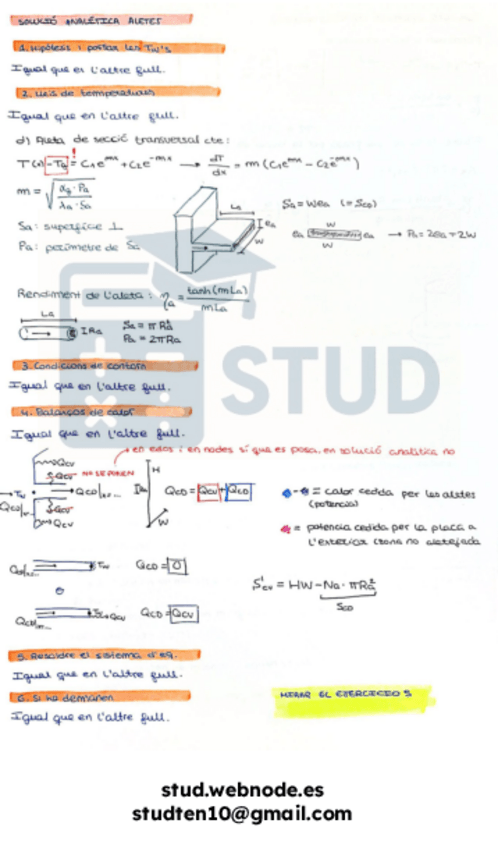 SOLUCIÓ ANALÍTICA ALETES
1. Hipòtesis i posar les Tw's
Igual que en l'altre full.
2. Lleis de temperatures
Igual que en l'altre full.
d) Aleta de secció transversal cte:
T(x)-Tg = C₁eᵐˣ + C₂e⁻ᵐˣ → dT/dx = m(C₁eᵐˣ - C₂e⁻ᵐˣ)
m = √(αg·Pa / λa·Sa)
La
ea
W
Sa = Wea (= Scd)
W
ea ea → Pa = 2ea + 2W
W
Sa: superfície ⊥
Pa: perímetre de Sa
Rendiment de l'aleta: ηa = tanh(mLa) / mLa
La
IRa
Sa = πRa²
Pa = 2πRa
STUD
3. Condicions de contorn
Igual que en l'altre full.
4. Balanços de calor
Igual que en l'altre full.
→ en estos i en nodes sí que es posa, en solució analítica no
Qcv
Qcv NO SE PONEN
Tw
Qcd
Qcv
Qcv
H
W
Qcd = Qcv + Qcd
= calor cedida per les aletes
(potència)
= potència cedida per la placa a
l'exterior (zona no aletejada
Tw
Qcd = 0
o
Qcv
Qcd = Qcv
S'cv = HW - Na·πRa²
Scd
5. Resoldre el sistema d'eq.
Igual que en l'altre full.
6. Si ho demanen
Igual que en l'altre full.
MIRAR EL EJERCICIO 5
stud.webnode.es
studten10@gmail.com